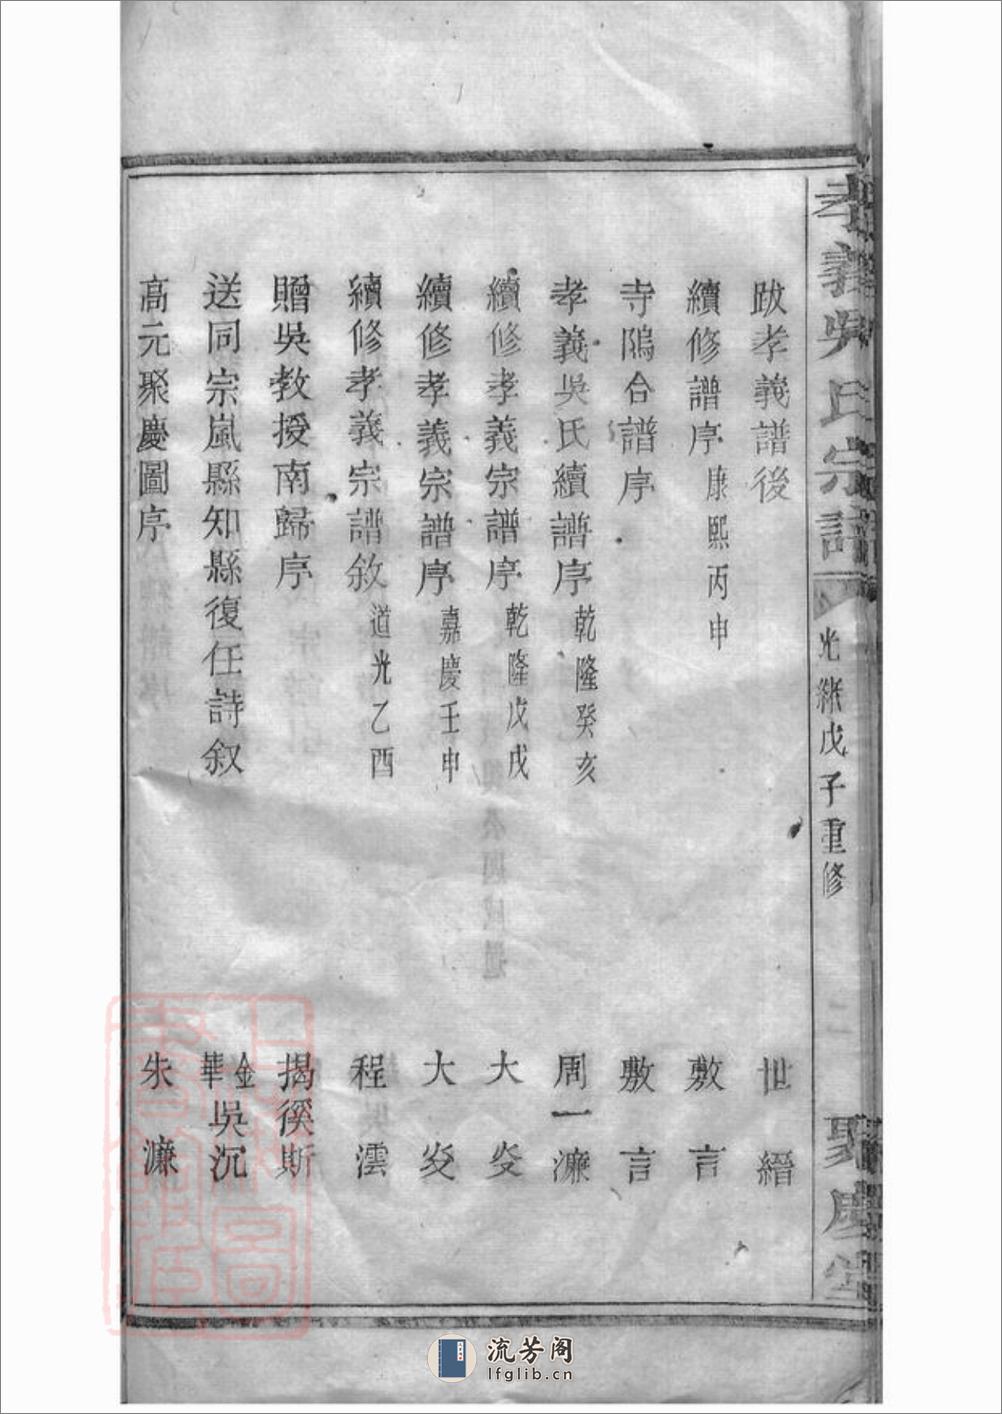 孝義吳氏宗譜 光緒戊子重修 二 聚慶堂
跋孝義譜後 世縉
續修譜序 康熙丙申 敷言
寺隝合譜序 敷言
孝義吳氏續譜序 乾隆癸亥 周一濂
續修孝義宗譜序 乾隆戊戌 大㚇
續修孝義宗譜序 嘉慶壬申 大㚇
續修孝義宗譜敘 道光乙酉 程澐
贈吳教授南歸序 揭徯斯
送同宗嵐縣知縣復任詩叙 金華吳沉
高元聚慶圖序 朱濂
流芳阁
lfglib.cn